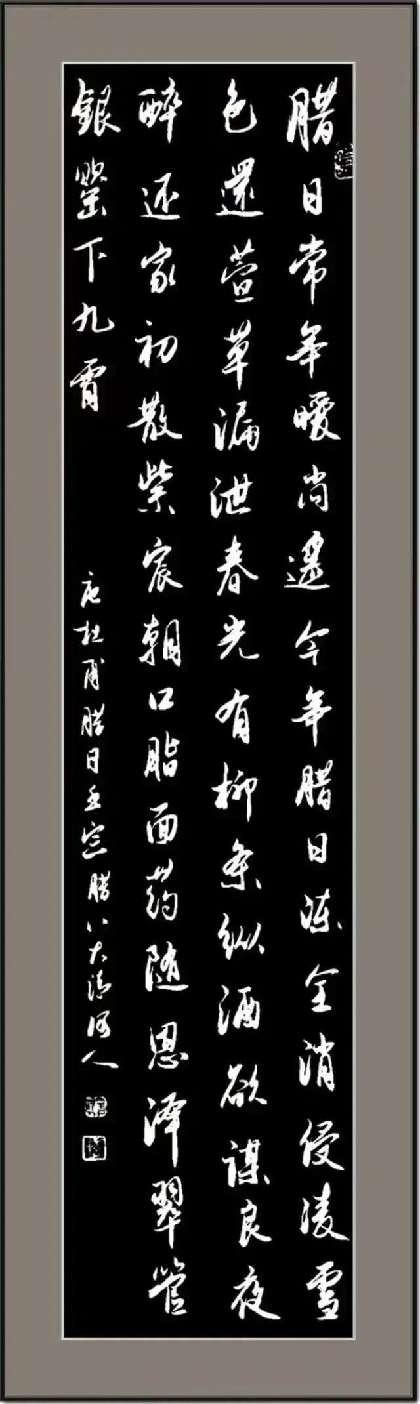 腊日常年暖尚遥今年腊日冻全消侵凌雪
色還萱草漏泄春光有柳条纵酒欲谋良夜
醉还家初散紫宸朝口脂面药随恩泽翠管
銀罌下九霄
唐杜甫腊日壬寅腊八大清河人